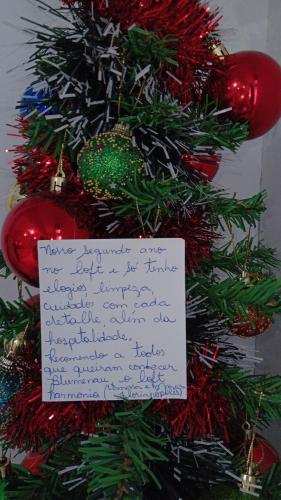 Nosso segundo ano
no loft e só tenho
elogios limpeza,
cuidado com cada
detalhe, além da
hospitalidade,
Recomendo a todos
que queiram conhecer
Blumenau, o loft
harmonia (
Florianópolis)